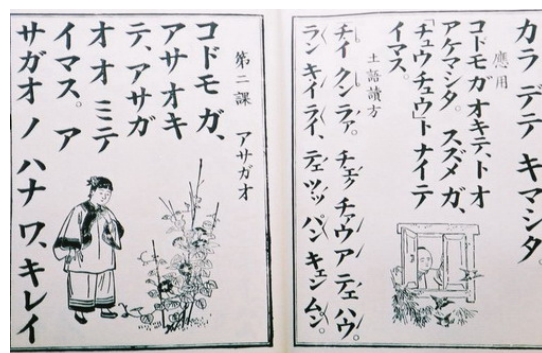 カラ デテ キマシタ。
應用
コドモ ガ オキテ、ト オ
アケマシタ。 スズメ ガ、
「チュウチュウ」ト ナイテ
イマス。
土語讀方
チイ クン ラァ。 チァウ ア テェ ハウ。
ラン キイ ライ、テェ ツッ パン キェン ムン。
第二課 アサガオ
コドモ ガ、
アサ オキ
テ、アサガ
オ オ ミテ
イマス。 ア
サガオ ノ ハナ ワ、キレイ